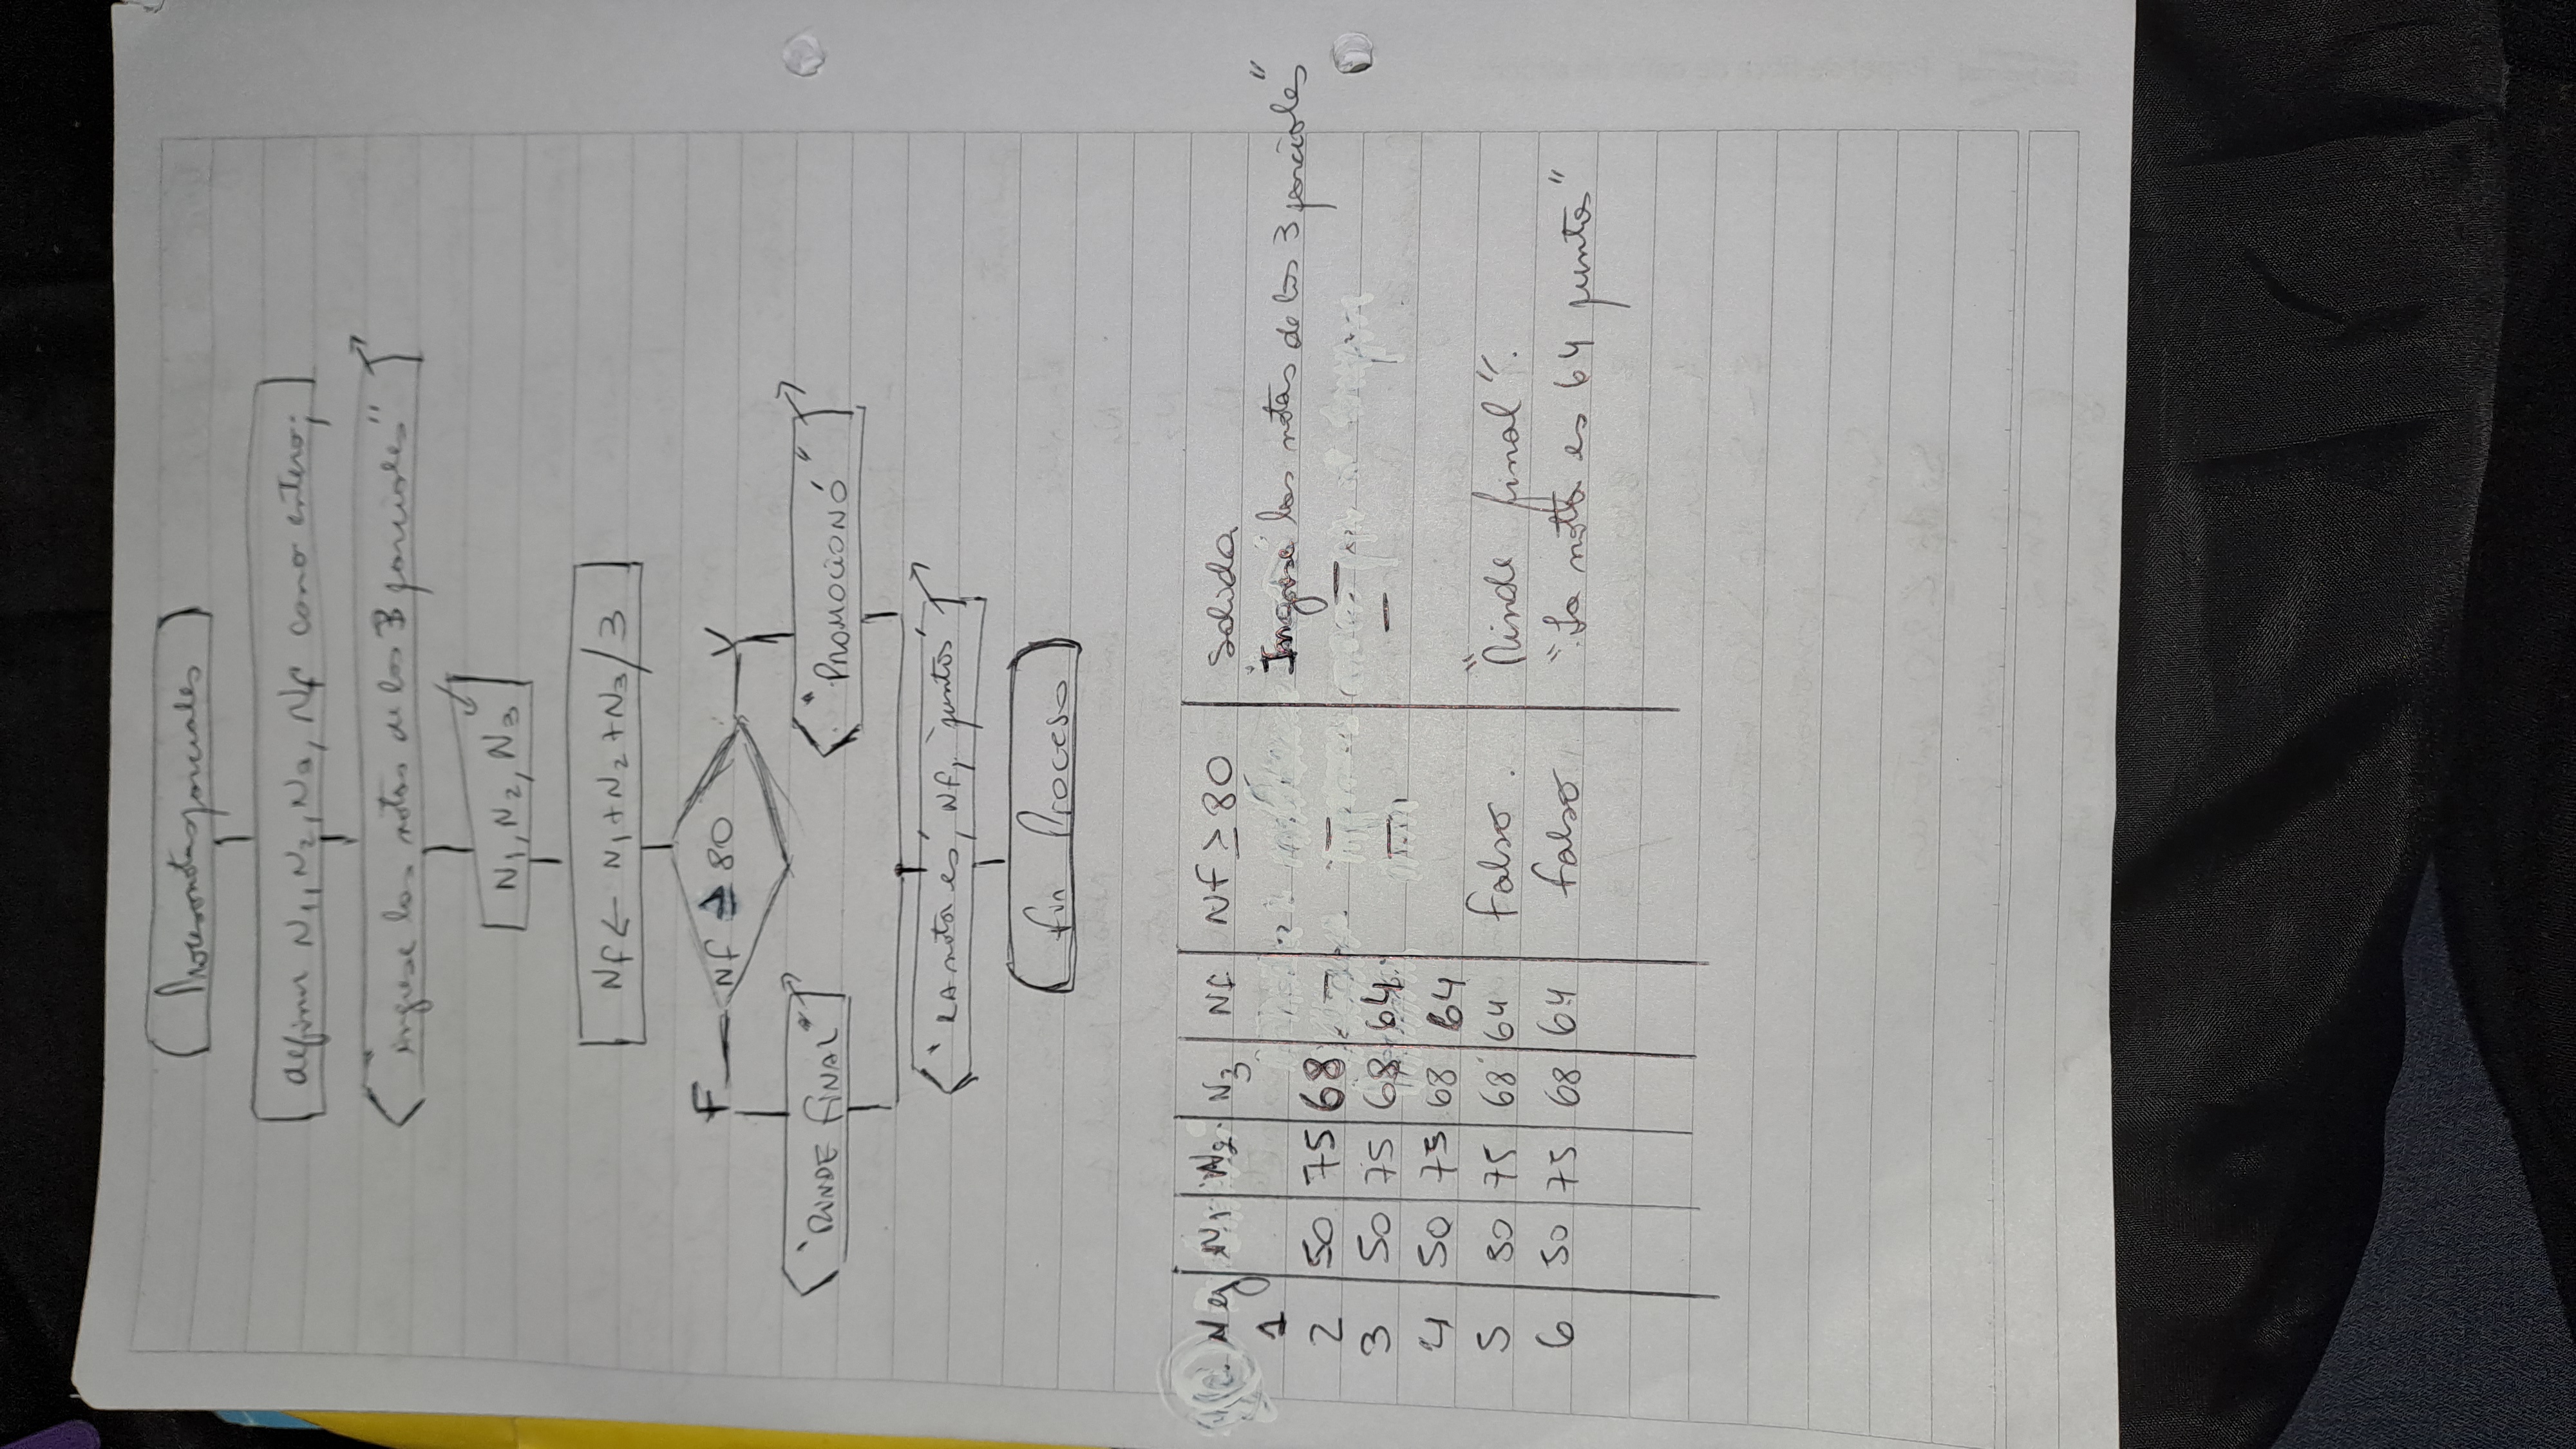 Proceso notas parciales
definir N1, N2, N3, Nf como entero;
"ingrese las notas de los 3 parciales"
N1, N2, N3
Nf ← N1+N2+N3/3
F Nf ≥ 80 V
"RINDE FINAL" "PROMOCIONÓ"
"LA nota es, Nf, "puntos"
fin Proceso
N1 N2 N3 Nf Nf ≥ 80 Salida
1 "Ingrese las notas de los 3 parciales"
2 50 75 68 — — —
3 50 75 68 64 — —
4 50 75 68 64
5 50 75 68 64 falso. "Rinde final".
6 50 75 68 64 falso "La nota es 64 puntos"